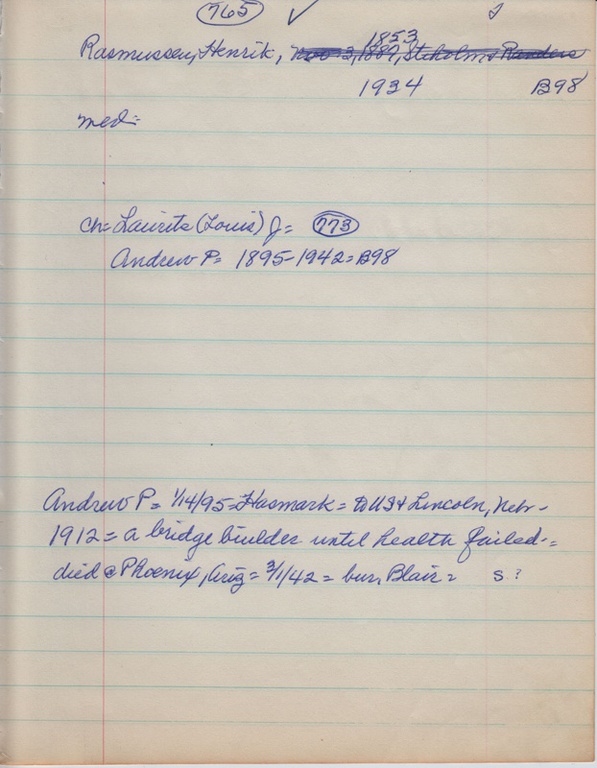 765 ✓
1853
Rasmussen, Henrik, Nov 3, 1887, Randers
1934 B98
med=
ch= Lauritz (Louis) J= 773
Andrew P= 1895-1942=B98
Andrew P= 1/14/95=Hasmark= to US & Lincoln, Nebr-
1912= a bridge builder until health failed-=
died @ Phoenix, Ariz= 3/1/42 = bur, Blair= s?